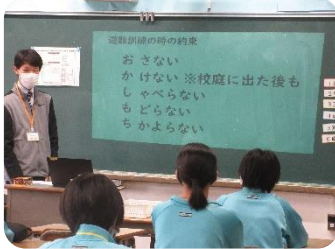 避難訓練の時の約束
お さない
か けない ※校庭に出た後も
し ゃべらない
も どらない
ち かよらない